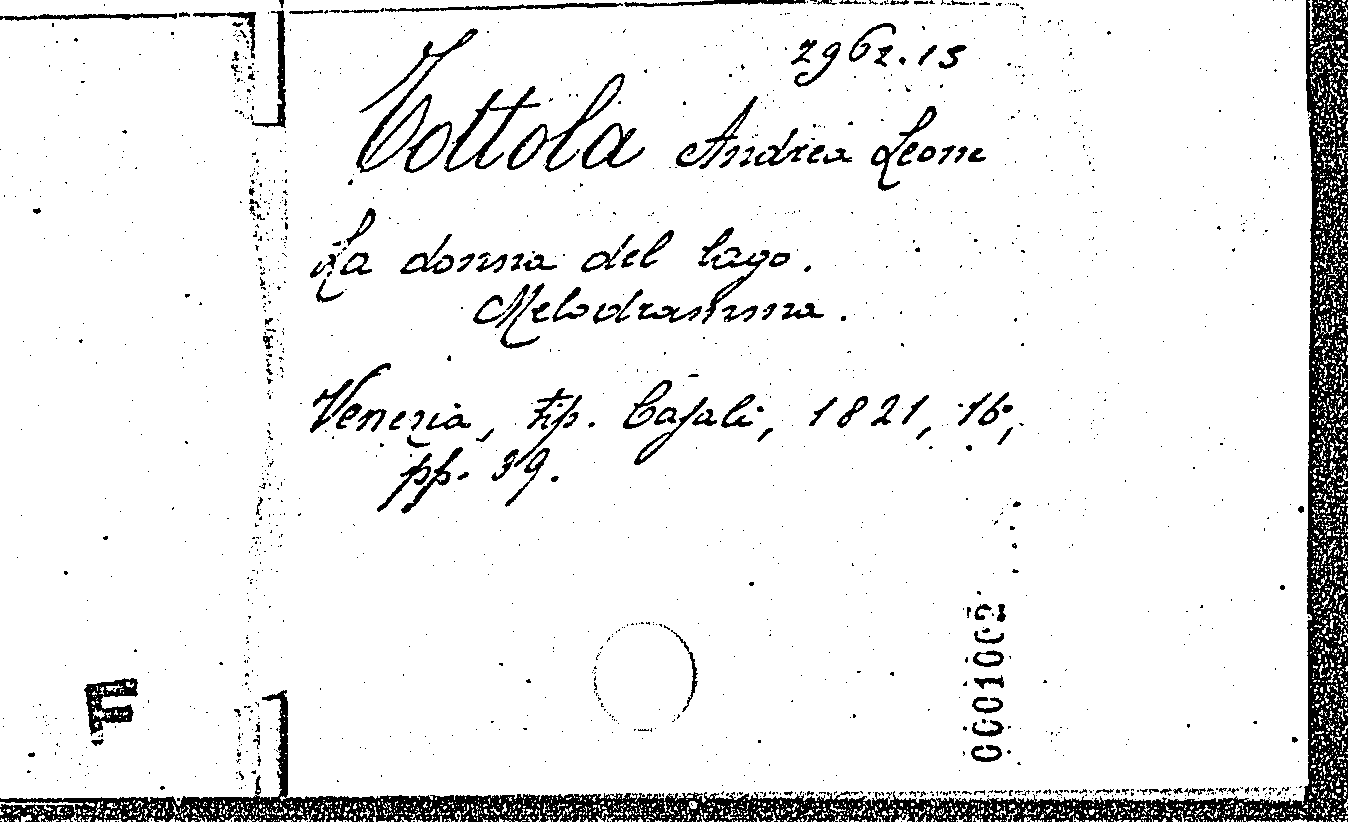 2962.13
Tottola Andrea Leone
La donna del lago.
Melodramma.
Venezia, tip. Casali, 1821, 16°,
pp. 39.
0001002
F